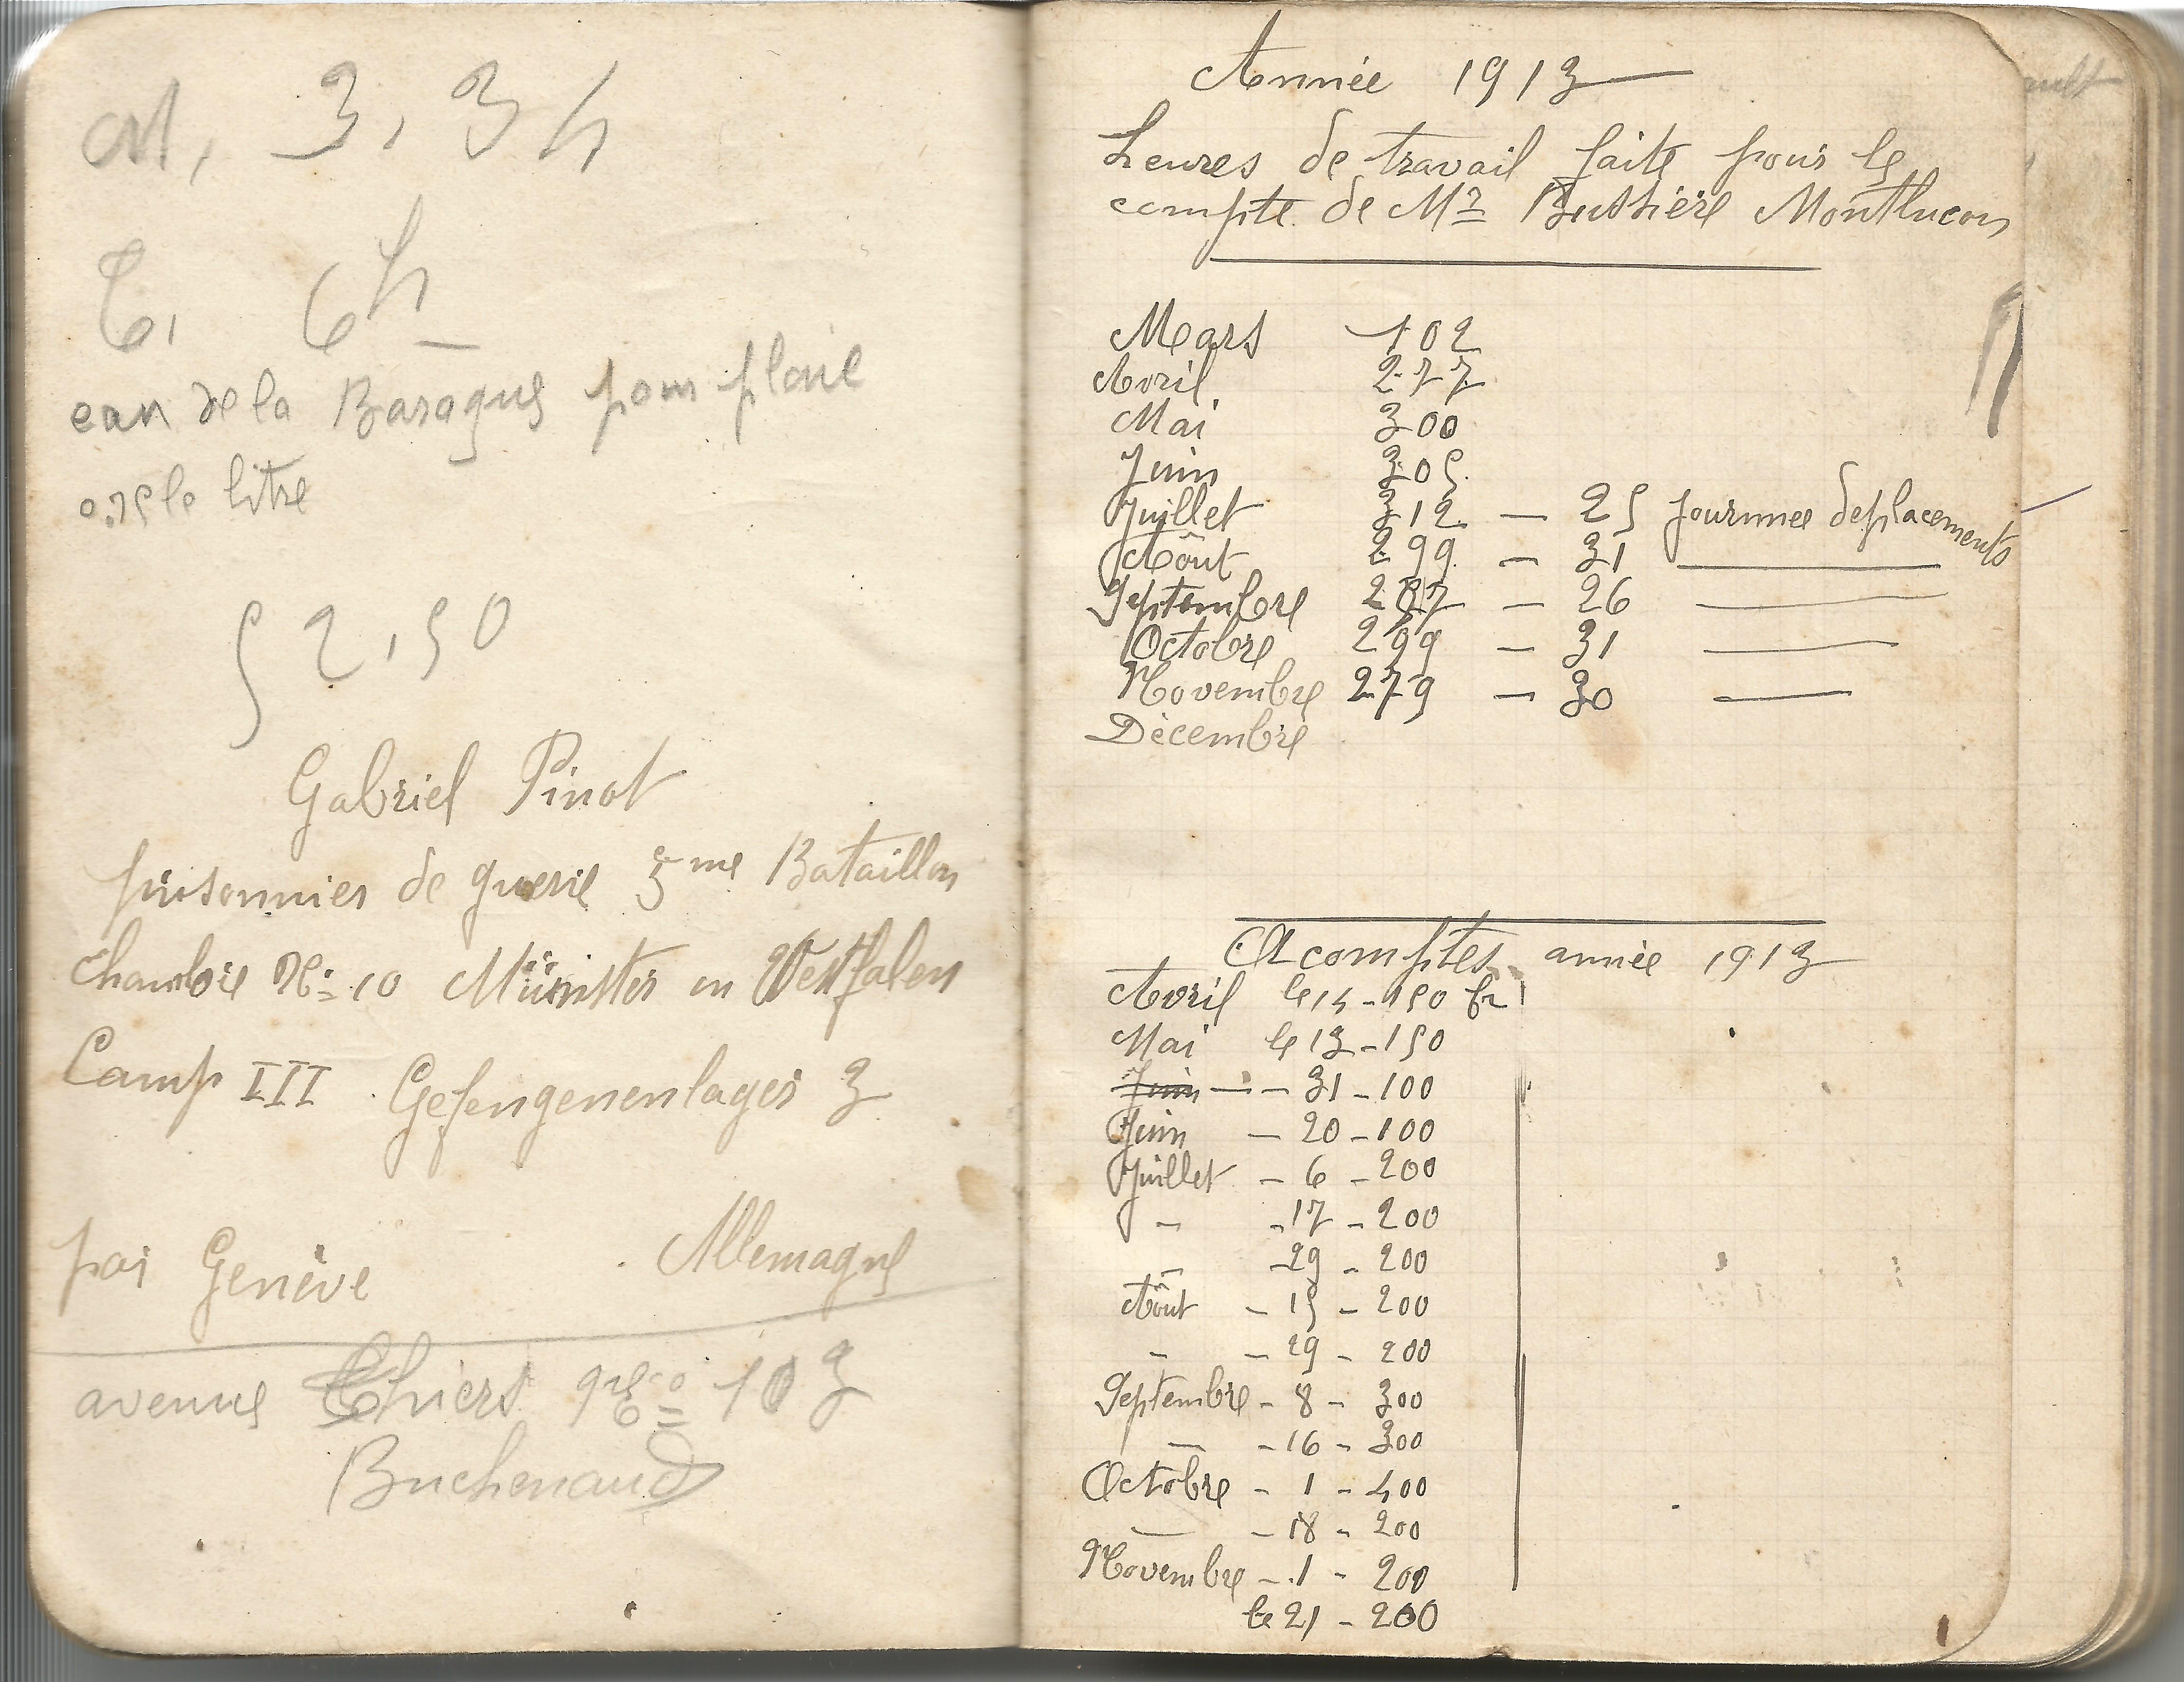 M, 3,34
T, 6h
eau de la Baraque pour plaie
0,75 le litre
52,50
Gabriel Pinot
prisonnier de guerre 5me Bataillon
Chambre No 10 Münster en Westfalen
Camp III Gefengenenlager 3
par Genève Allemagne
avenue Thiers No 103
Buchenaud
Année 1913
heures de travail faite pour le
compte de Mr Bussière Montlucon
Mars 102
Avril 277
Mai 300
Juin 305
Juillet 312 — 25 journnee deplacements
Aôut 299 — 31 ——
Septembre 287 — 26 ——
Octobre 299 — 31 ——
Novembre 279 — 30 ——
Décembre
Acomptes année 1913
Avril le 14 - 150 fr
Mai le 13 - 150
Juin — - 31 - 100
Juin — 20 - 100
Juillet - 6 - 200
- - 17 - 200
- - 29 - 200
Aôut - 15 - 200
- - 29 - 200
Septembre - 8 - 300
— - 16 - 300
Octobre - 1 - 400
— - 18 - 200
Novembre - 1 - 200
le 21 - 200